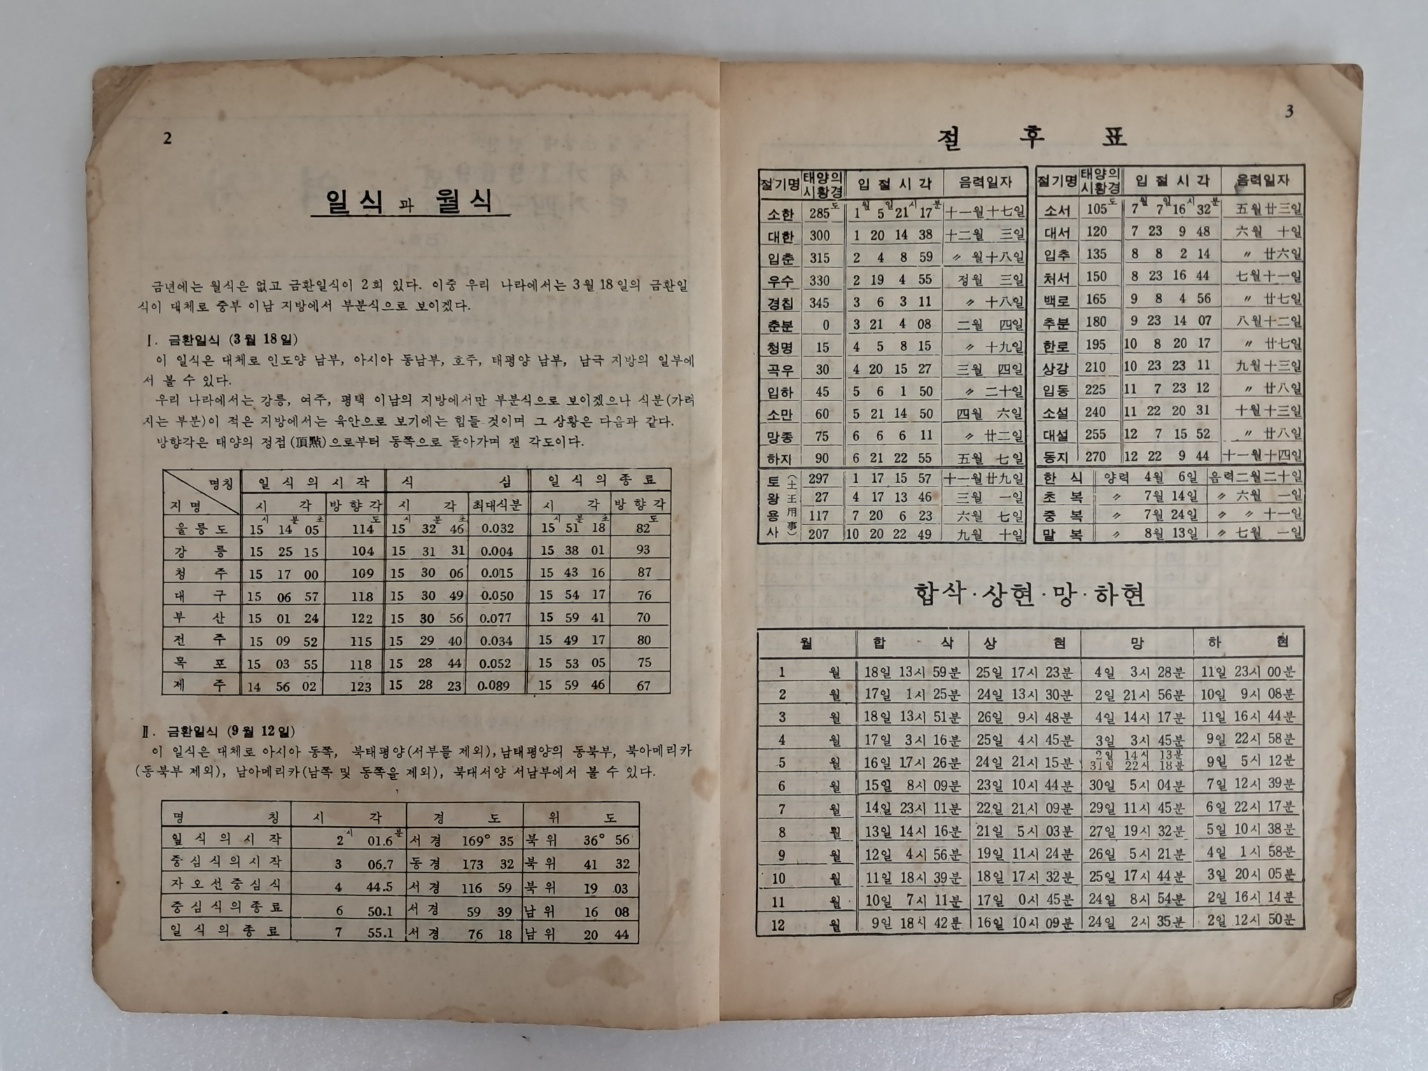 2
일식과 월식
금년에는 월식은 없고 금환일식이 2회 있다. 이중 우리 나라에서는 3월 18일의 금환일
식이 대체로 중부 이남 지방에서 부분식으로 보이겠다.
Ⅰ. 금환일식 (3월 18일)
이 일식은 대체로 인도양 남부, 아시아 동남부, 호주, 태평양 남부, 남극 지방의 일부에
서 볼 수 있다.
우리 나라에서는 강릉, 여주, 평택 이남의 지방에서만 부분식으로 보이겠으나 식분(가려
지는 부분)이 적은 지방에서는 육안으로 보기에는 힘들 것이며 그 상황은 다음과 같다.
방향각은 태양의 정점(頂點)으로부터 동쪽으로 돌아가며 잰 각도이다.
명칭 일식의 시작 식 심 일식의 종료
지명 시 각 방향각 시 각 최대식분 시 각 방향각
울릉도 15시 14분 05초 114도 15시 32분 46초 0.032 15시 51분 18초 82도
강릉 15 25 15 104 15 31 31 0.004 15 38 01 93
청주 15 17 00 109 15 30 06 0.015 15 43 16 87
대구 15 06 57 118 15 30 49 0.050 15 54 17 76
부산 15 01 24 122 15 30 56 0.077 15 59 41 70
전주 15 09 52 115 15 29 40 0.034 15 49 17 80
목포 15 03 55 118 15 28 44 0.052 15 53 05 75
제주 14 56 02 123 15 28 23 0.089 15 59 46 67
Ⅱ. 금환일식 (9월 12일)
이 일식은 대체로 아시아 동쪽, 북태평양(서부를 제외), 남태평양의 동북부, 북아메리카
(동북부 제외), 남아메리카(남쪽 및 동쪽을 제외), 북대서양 서남부에서 볼 수 있다.
명칭 시각 경도 위도
일식의 시작 2시 01.6분 서경 169° 35 북위 36° 56
중심식의 시작 3 06.7 동경 173 32 북위 41 32
자오선중심식 4 44.5 서경 116 59 북위 19 03
중심식의 종료 6 50.1 서경 59 39 남위 16 08
일식의 종료 7 55.1 서경 76 18 남위 20 44
3
절후표
절기명 태양의 시황경 입절시각 음력일자
소한 285도 1월 5일 21시 17분 十一월十七일
대한 300 1 20 14 38 十二월 三일
입춘 315 2 4 8 59 〃 월十八일
우수 330 2 19 4 55 정월 三일
경칩 345 3 6 3 11 〃 十八일
춘분 0 3 21 4 08 二월 四일
청명 15 4 5 8 15 〃 十九일
곡우 30 4 20 15 27 三월 四일
입하 45 5 6 1 50 〃 二十일
소만 60 5 21 14 50 四월 六일
망종 75 6 6 6 11 〃 廿二일
하지 90 6 21 22 55 五월 七일
토왕용사 (土王用事)
297 1 17 15 57 十一월廿九일
27 4 17 13 46 三월 一일
117 7 20 6 23 六월 七일
207 10 20 22 49 九월 十일
절기명 태양의 시황경 입절시각 음력일자
소서 105도 7월 7일 16시 32분 五월廿三일
대서 120 7 23 9 48 六월 十일
입추 135 8 8 2 14 〃 廿六일
처서 150 8 23 16 44 七월十一일
백로 165 9 8 4 56 〃 廿七일
추분 180 9 23 14 07 八월十二일
한로 195 10 8 20 17 〃 廿七일
상강 210 10 23 23 11 九월十三일
입동 225 11 7 23 12 〃 廿八일
소설 240 11 22 20 31 十월十三일
대설 255 12 7 15 52 〃 廿八일
동지 270 12 22 9 44 十一월十四일
한식 양력 4월 6일 음력二월二十일
초복 〃 7월 14일 〃 六월 一일
중복 〃 7월 24일 〃 〃 十一일
말복 〃 8월 13일 〃 七월 一일
합삭·상현·망·하현
월 합삭 상현 망 하현
1월 18일 13시 59분 25일 17시 23분 4일 3시 28분 11일 23시 00분
2월 17일 1시 25분 24일 13시 30분 2일 21시 56분 10일 9시 08분
3월 18일 13시 51분 26일 9시 48분 4일 14시 17분 11일 16시 44분
4월 17일 3시 16분 25일 4시 45분 3일 3시 45분 9일 22시 58분
5월 16일 17시 26분 24일 21시 15분 2일 14시 13분 31일 22시 18분 9일 5시 12분
6월 15일 8시 09분 23일 10시 44분 30일 5시 04분 7일 12시 39분
7월 14일 23시 11분 22일 21시 09분 29일 11시 45분 6일 22시 17분
8월 13일 14시 16분 21일 5시 03분 27일 19시 32분 5일 10시 38분
9월 12일 4시 56분 19일 11시 24분 26일 5시 21분 4일 1시 58분
10월 11일 18시 39분 18일 17시 32분 25일 17시 44분 3일 20시 05분
11월 10일 7시 11분 17일 0시 45분 24일 8시 54분 2일 16시 14분
12월 9일 18시 42분 16일 10시 09분 24일 2시 35분 2일 12시 50분